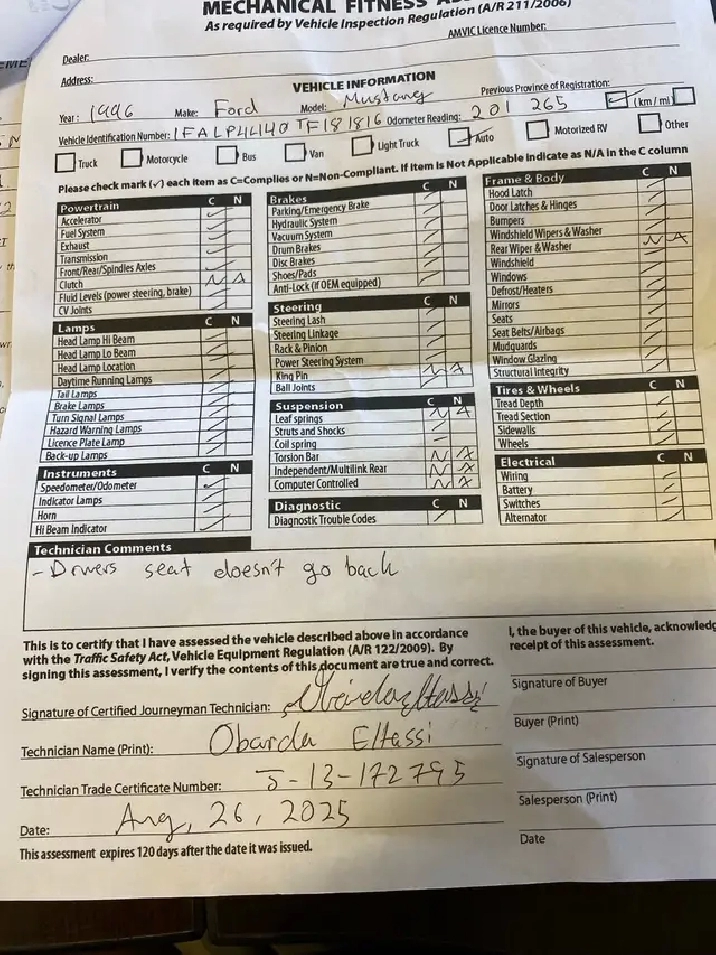 MECHANICAL FITNESS
As required by Vehicle Inspection Regulation (A/R 211/2006)
AMVIC Licence Number:
Dealer:
Address:
VEHICLE INFORMATION
Previous Province of Registration:
Year: 1996 Make: Ford Model: Mustang
Vehicle Identification Number: 1FALP4440TF181816 Odometer Reading: 201 265 (km / mi)
Truck Motorcycle Bus Van Light Truck Auto Motorized RV Other
Please check mark (✓) each item as C=Complies or N=Non-Compliant. If Item Is Not Applicable Indicate as N/A in the C column
Powertrain C N
Accelerator ✓
Fuel System ✓
Exhaust ✓
Transmission ✓
Front/Rear/Spindles Axles ✓
Clutch N A
Fluid Levels (power steering, brake) ✓
CV Joints ✓
Lamps C N
Head Lamp Hi Beam ✓
Head Lamp Lo Beam ✓
Head Lamp Location ✓
Daytime Running Lamps ✓
Tail Lamps ✓
Brake Lamps ✓
Turn Signal Lamps ✓
Hazard Warning Lamps ✓
Licence Plate Lamp ✓
Back-up Lamps ✓
Instruments C N
Speedometer/Odometer ✓
Indicator Lamps ✓
Horn ✓
Hi Beam Indicator ✓
Brakes C N
Parking/Emergency Brake ✓
Hydraulic System ✓
Vacuum System ✓
Drum Brakes ✓
Disc Brakes ✓
Shoes/Pads ✓
Anti-Lock (if OEM equipped) ✓
Steering C N
Steering Lash ✓
Steering Linkage ✓
Rack & Pinion ✓
Power Steering System ✓
King Pin N A
Ball Joints ✓
Suspension C N
Leaf springs N A
Struts and Shocks ✓
Coil spring ✓
Torsion Bar N A
Independent/Multilink Rear N A
Computer Controlled N A
Diagnostic C N
Diagnostic Trouble Codes ✓
Frame & Body C N
Hood Latch ✓
Door Latches & Hinges ✓
Bumpers ✓
Windshield Wipers & Washer ✓
Rear Wiper & Washer N A
Windshield ✓
Windows ✓
Defrost/Heaters ✓
Mirrors ✓
Seats ✓
Seat Belts/Airbags ✓
Mudguards ✓
Window Glazing ✓
Structural Integrity ✓
Tires & Wheels C N
Tread Depth ✓
Tread Section ✓
Sidewalls ✓
Wheels ✓
Electrical C N
Wiring ✓
Battery ✓
Switches ✓
Alternator ✓
Technician Comments
- Drivers seat doesn't go back
This is to certify that I have assessed the vehicle described above in accordance
with the Traffic Safety Act, Vehicle Equipment Regulation (A/R 122/2009). By
signing this assessment, I verify the contents of this document are true and correct.
Signature of Certified Journeyman Technician:
Technician Name (Print): Obarda Eltassi
Technician Trade Certificate Number: J-13-172795
Date: Aug, 26, 2025
This assessment expires 120 days after the date it was issued.
I, the buyer of this vehicle, acknowledg
receipt of this assessment.
Signature of Buyer
Buyer (Print)
Signature of Salesperson
Salesperson (Print)
Date